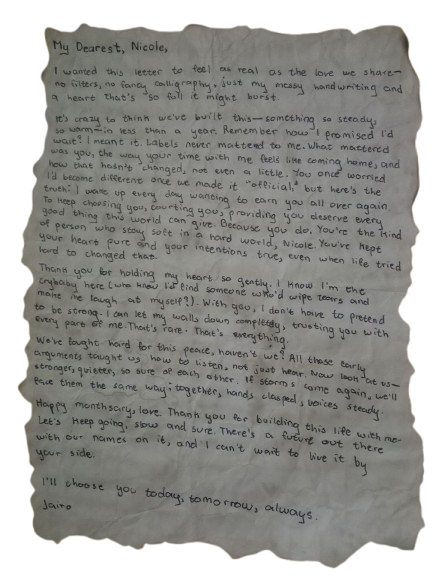 My Dearest, Nicole,
I wanted this letter to feel as real as the love we share—
no filters, no fancy calligraphy, just my messy handwriting and
a heart that's so full it might burst.
It's crazy to think we've built this—something so steady,
so warm—in less than a year. Remember how I promised I'd
wait? I meant it. Labels never mattered to me. What mattered
was you, the way your time with me feels like coming home, and
how that hasn't changed, not even a little. You once worried
I'd become different once we made it "official," but here's the
truth: I wake up every day wanting to earn you all over again.
To keep choosing you, courting you, providing you deserve every
good thing this world can give. Because you do. You're the kind
of person who stay soft in a hard world, Nicole. You've kept
your heart pure and your intentions true, even when life tried
hard to changed that.
Thank you for holding my heart so gently. I know I'm the
crybaby here (who knew I'd find someone who'd wipe tears and
make me laugh at myself?). With you, I don't have to pretend
to be strong. I can let my walls down completely, trusting you with
every part of me. That's rare. That's everything.
We've fought hard for this peace, haven't we? All those early
arguments taught us how to listen, not just hear. Now look at us—
stronger, quieter, so sure of each other. If storms come again, we'll
face them the same way: together, hands clasped, voices steady.
Happy monthsary, love. Thank you for building this life with me.
Let's keep going, slow and sure. There's a future out there
with our names on it, and I can't wait to live it by
your side.
I'll choose you today, tomorrow, always.
Jairo